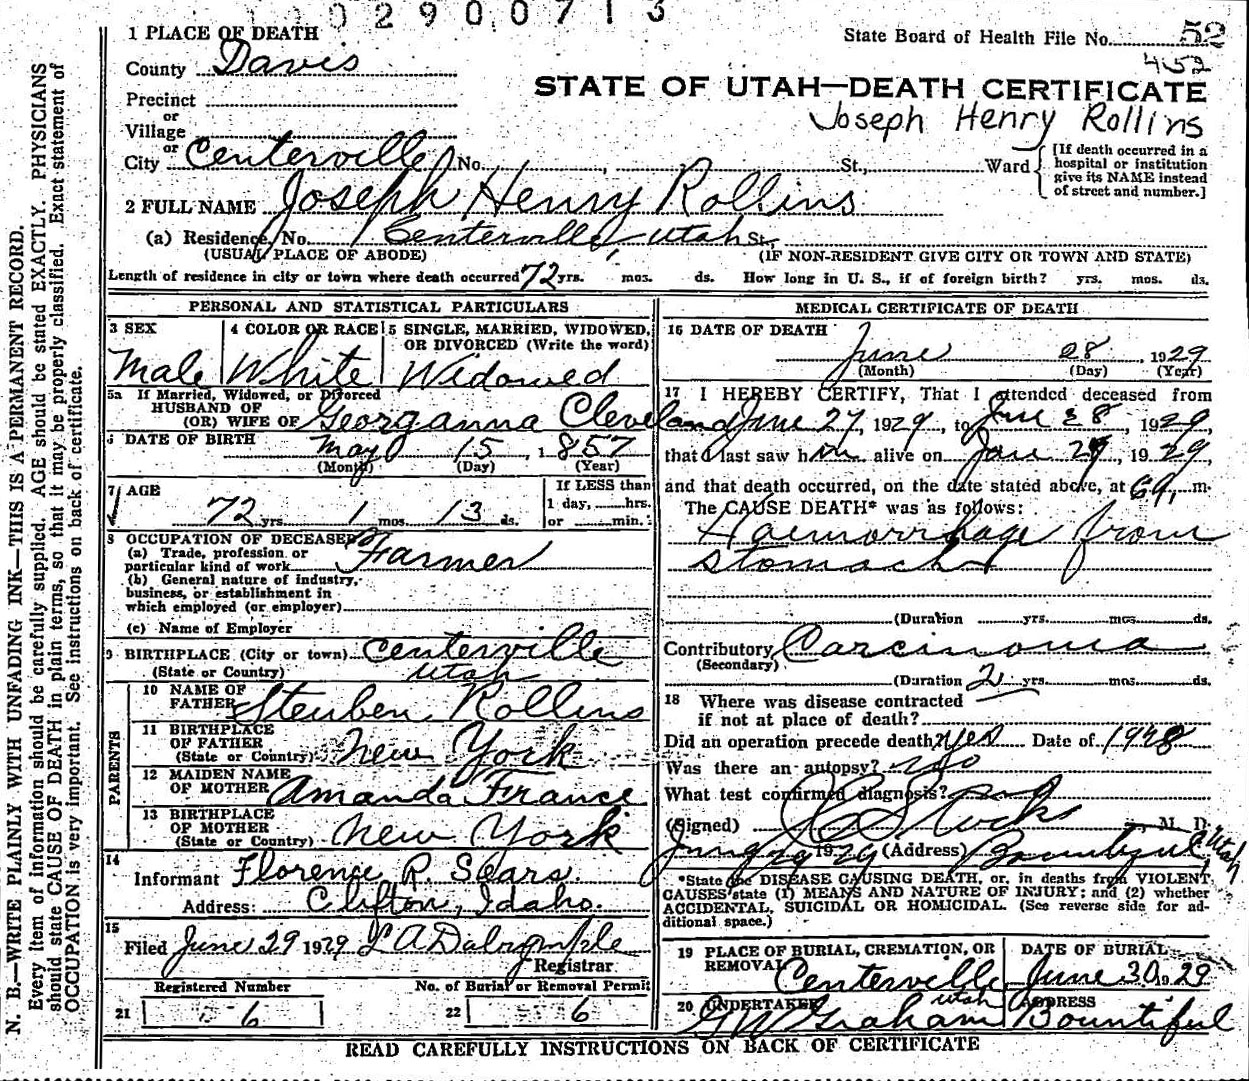 0 2 9 0 0 7 1 3
1 PLACE OF DEATH
State Board of Health File No. 52
452
County Davis
STATE OF UTAH—DEATH CERTIFICATE
Precinct
or
Joseph Henry Rollins
Village
or
City Centerville No. St., Ward
[If death occurred in a hospital or institution give its NAME instead of street and number.]
2 FULL NAME Joseph Henry Rollins
(a) Residence, No. Centerville, Utah St.,
(USUAL PLACE OF ABODE) (IF NON-RESIDENT GIVE CITY OR TOWN AND STATE)
Length of residence in city or town where death occurred 72 yrs. mos. ds. How long in U. S., if of foreign birth? yrs. mos. ds.
PERSONAL AND STATISTICAL PARTICULARS
3 SEX
Male
4 COLOR OR RACE
White
5 SINGLE, MARRIED, WIDOWED, OR DIVORCED (Write the word)
Widowed
5a If Married, Widowed, or Divorced
HUSBAND OF
(OR) WIFE OF Georganna Cleveland
6 DATE OF BIRTH
May 15, 1857
(Month) (Day) (Year)
7 AGE
72 yrs. 1 mos. 13 ds.
If LESS than
1 day, hrs.
or min.
8 OCCUPATION OF DECEASED
(a) Trade, profession or
particular kind of work Farmer
(b) General nature of industry,
business, or establishment in
which employed (or employer)
(c) Name of Employer
9 BIRTHPLACE (City or town) Centerville
(State or Country) Utah
PARENTS
10 NAME OF
FATHER Steuben Rollins
11 BIRTHPLACE
OF FATHER
(State or Country) New York
12 MAIDEN NAME
OF MOTHER Amanda France
13 BIRTHPLACE
OF MOTHER
(State or Country) New York
14
Informant Florence R. Sears.
Address: Clifton, Idaho.
15
Filed June 29 1929 L A Dalrymple
Registrar.
Registered Number No. of Burial or Removal Permit
21 6 22 6
MEDICAL CERTIFICATE OF DEATH
16 DATE OF DEATH
June 28, 1929
(Month) (Day) (Year)
17 I HEREBY CERTIFY, That I attended deceased from
June 27, 1929, to June 28, 1929,
that I last saw him alive on 1929,
and that death occurred, on the date stated above, at m.
The CAUSE DEATH* was as follows:
Haemorrhage from
stomach
(Duration yrs. mos. ds.
Contributory Carcinoma
(Secondary)
(Duration 2 yrs. mos. ds.
18 Where was disease contracted
if not at place of death?
Did an operation precede death? yes Date of 1928
Was there an autopsy? no
What test confirmed diagnosis?
(Signed) Stocks, M. D.
June 29 1929 (Address) Bountiful Utah
*State the DISEASE CAUSING DEATH, or, in deaths from VIOLENT
CAUSES state (1) MEANS AND NATURE OF INJURY; and (2) whether
ACCIDENTAL, SUICIDAL OR HOMICIDAL. (See reverse side for ad-
ditional space.)
19 PLACE OF BURIAL, CREMATION, OR
REMOVAL Centerville
Utah
DATE OF BURIAL
June 30, 1929
20 UNDERTAKER
G W Graham
ADDRESS
Bountiful
READ CAREFULLY INSTRUCTIONS ON BACK OF CERTIFICATE
N. B.—WRITE PLAINLY WITH UNFADING INK—THIS IS A PERMANENT RECORD.
Every item of information should be carefully supplied. AGE should be stated EXACTLY. PHYSICIANS
should state CAUSE OF DEATH in plain terms, so that it may be properly classified. Exact statement of
OCCUPATION is very important. See instructions on back of certificate.